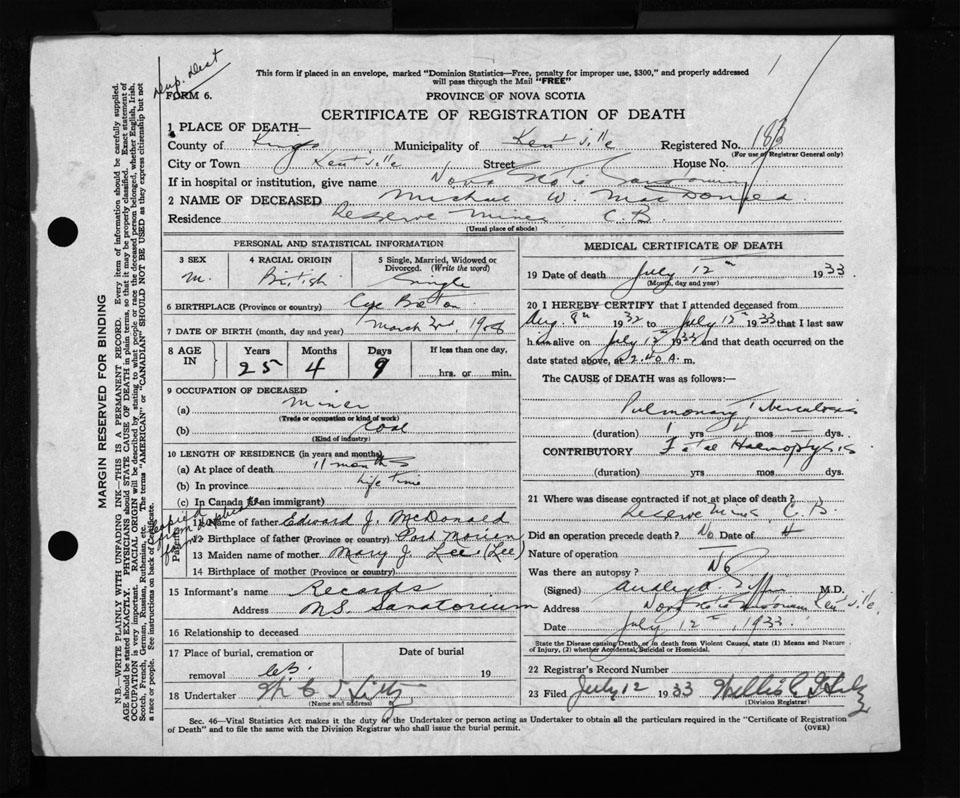 Dup. Dist
This form if placed in an envelope, marked "Dominion Statistics—Free, penalty for improper use, $300," and properly addressed
will pass through the Mail "FREE"
FORM 6.
PROVINCE OF NOVA SCOTIA
CERTIFICATE OF REGISTRATION OF DEATH
1 PLACE OF DEATH—
County of Kings Municipality of Kentville Registered No. 183
(For use of Registrar General only)
City or Town Kentville Street House No.
If in hospital or institution, give name Nova Scotia Sanatorium
2 NAME OF DECEASED Michael W. MacDonald
Residence Reserve Mines C.B.
(Usual place of abode)
PERSONAL AND STATISTICAL INFORMATION
3 SEX 4 RACIAL ORIGIN 5 Single, Married, Widowed or
Divorced. (Write the word)
M. British Single
6 BIRTHPLACE (Province or country) Cape Breton
7 DATE OF BIRTH (month, day and year) March 3rd, 1908
8 AGE IN Years Months Days If less than one day,
25 4 9 hrs. or min.
9 OCCUPATION OF DECEASED
(a) Miner
(Trade or occupation or kind of work)
(b) Coal
(Kind of industry)
10 LENGTH OF RESIDENCE (in years and months)
(a) At place of death 11 months
(b) In province Life Time
(c) In Canada (if an immigrant)
Parents
11 Name of father Edward J. McDonald
12 Birthplace of father (Province or country) Port Morien
13 Maiden name of mother Mary J. Lee (Lee)
14 Birthplace of mother (Province or country)
15 Informant's name Records
Address N.S. Sanatorium
16 Relationship to deceased
17 Place of burial, cremation or Date of burial
removal C.B. 19
18 Undertaker
(Name and address)
MEDICAL CERTIFICATE OF DEATH
19 Date of death July 12th 1933
(Month, day and year)
20 I HEREBY CERTIFY that I attended deceased from
Aug. 8th 1932 to July 12th 1933 that I last saw
him alive on July 12th 1933 and that death occurred on the
date stated above, at 2.40 A. m.
The CAUSE of DEATH was as follows:—
Pulmonary Tuberculosis
(duration) 1 yrs mos — dys.
CONTRIBUTORY Fatal Haemoptysis
(duration) yrs mos dys.
21 Where was disease contracted if not at place of death?
Reserve Mines, C.B.
Did an operation precede death? No Date of
Nature of operation
Was there an autopsy? No
(Signed) M.D.
Address Nova Scotia Sanatorium Kentville
Date July 12th, 1933
State the Disease causing Death, or in death from Violent Causes, state (1) Means and Nature
of Injury, (2) whether Accidental, Suicidal or Homicidal.
22 Registrar's Record Number
23 Filed July 12 1933
(Division Registrar)
Sec. 46—Vital Statistics Act makes it the duty of the Undertaker or person acting as Undertaker to obtain all the particulars required in the "Certificate of Registration
of Death" and to file the same with the Division Registrar who shall issue the burial permit.
(OVER)
MARGIN RESERVED FOR BINDING
N.B.—WRITE PLAINLY WITH UNFADING INK—THIS IS A PERMANENT RECORD. Every item of information should be carefully supplied.
AGE should be stated EXACTLY. PHYSICIANS should STATE CAUSE OF DEATH in plain terms, so that it may be properly classified. Exact statement of
OCCUPATION is very important. RACIAL ORIGIN will be described by stating to what people or race the deceased person belonged, whether English, Irish,
Scotch, French, German, Russian, Ruthenian, etc. The terms "AMERICAN" or "CANADIAN" SHOULD NOT BE USED as they express citizenship but not
a race or people. See instructions on back of Certificate.